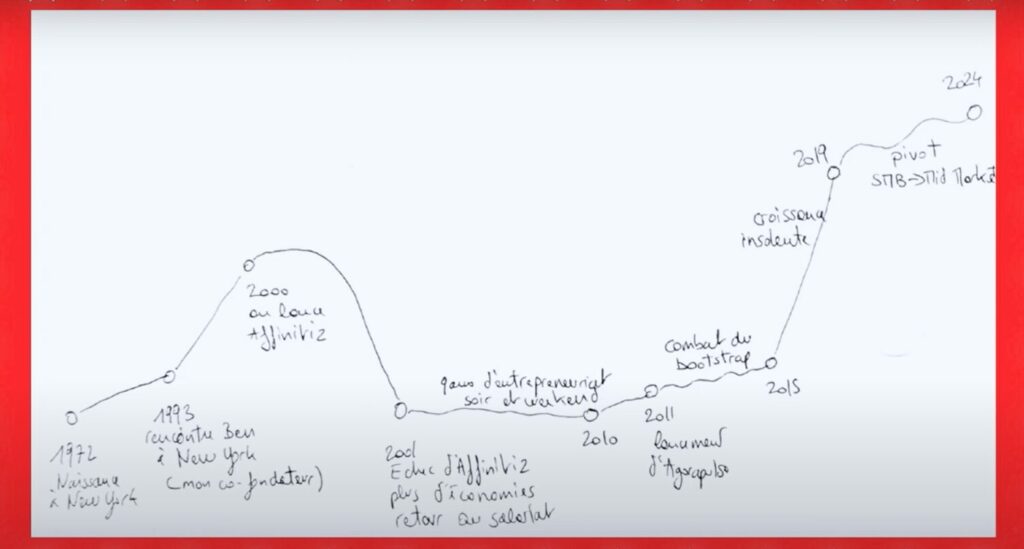 1972
Naissance
à New York
1993
rencontre Ben
à New York
(mon co-fondateur)
2000
on lance
Affinitiz
2001
Echec d'Affinitiz
plus d'économies
retour au salariat
9 ans d'entrepreneuriat
soir et weekend
2010
2011
lancement
d'Agorapulse
combat du
bootstrap
2015
croissance
insolente
2019
pivot
SMB->Mid Market
2024